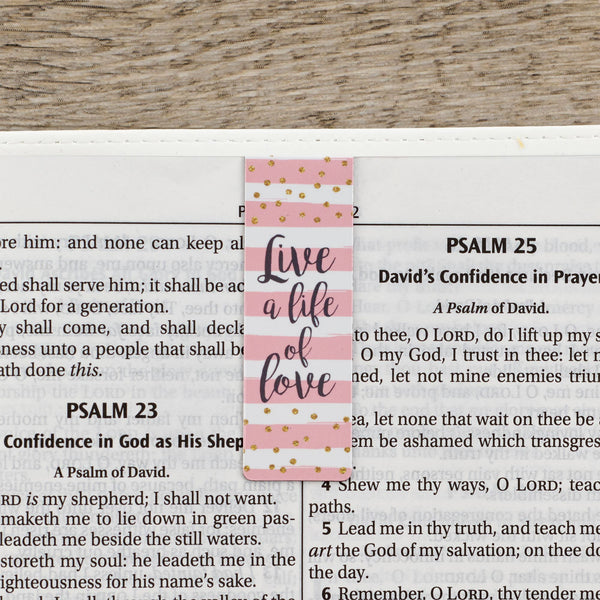 2
ore him: and none can keep al
ed shall serve him; it shall be ac
Lord for a generation.
y shall come, and shall decla
sness unto a people that shall b
ath done this.
PSALM 23
Confidence in God as His Shep
A Psalm of David.
ORD is my shepherd; I shall not want.
maketh me to lie down in green pas-
leadeth me beside the still waters.
storeth my soul: he leadeth me in the
ighteousness for his name's sake.
Live
a life
of
love
PSALM 25
David's Confidence in Prayer
A Psalm of David.
to thee, O LORD, do I lift up my s
O my God, I trust in thee: let n
ned, let not mine enemies trium
ea, let none that wait on thee be a
em be ashamed which transgres
4 Shew me thy ways, O LORD; teac
paths.
5 Lead me in thy truth, and teach me
art the God of my salvation; on thee do
the day.
6 Remember, O LORD, thy tender me